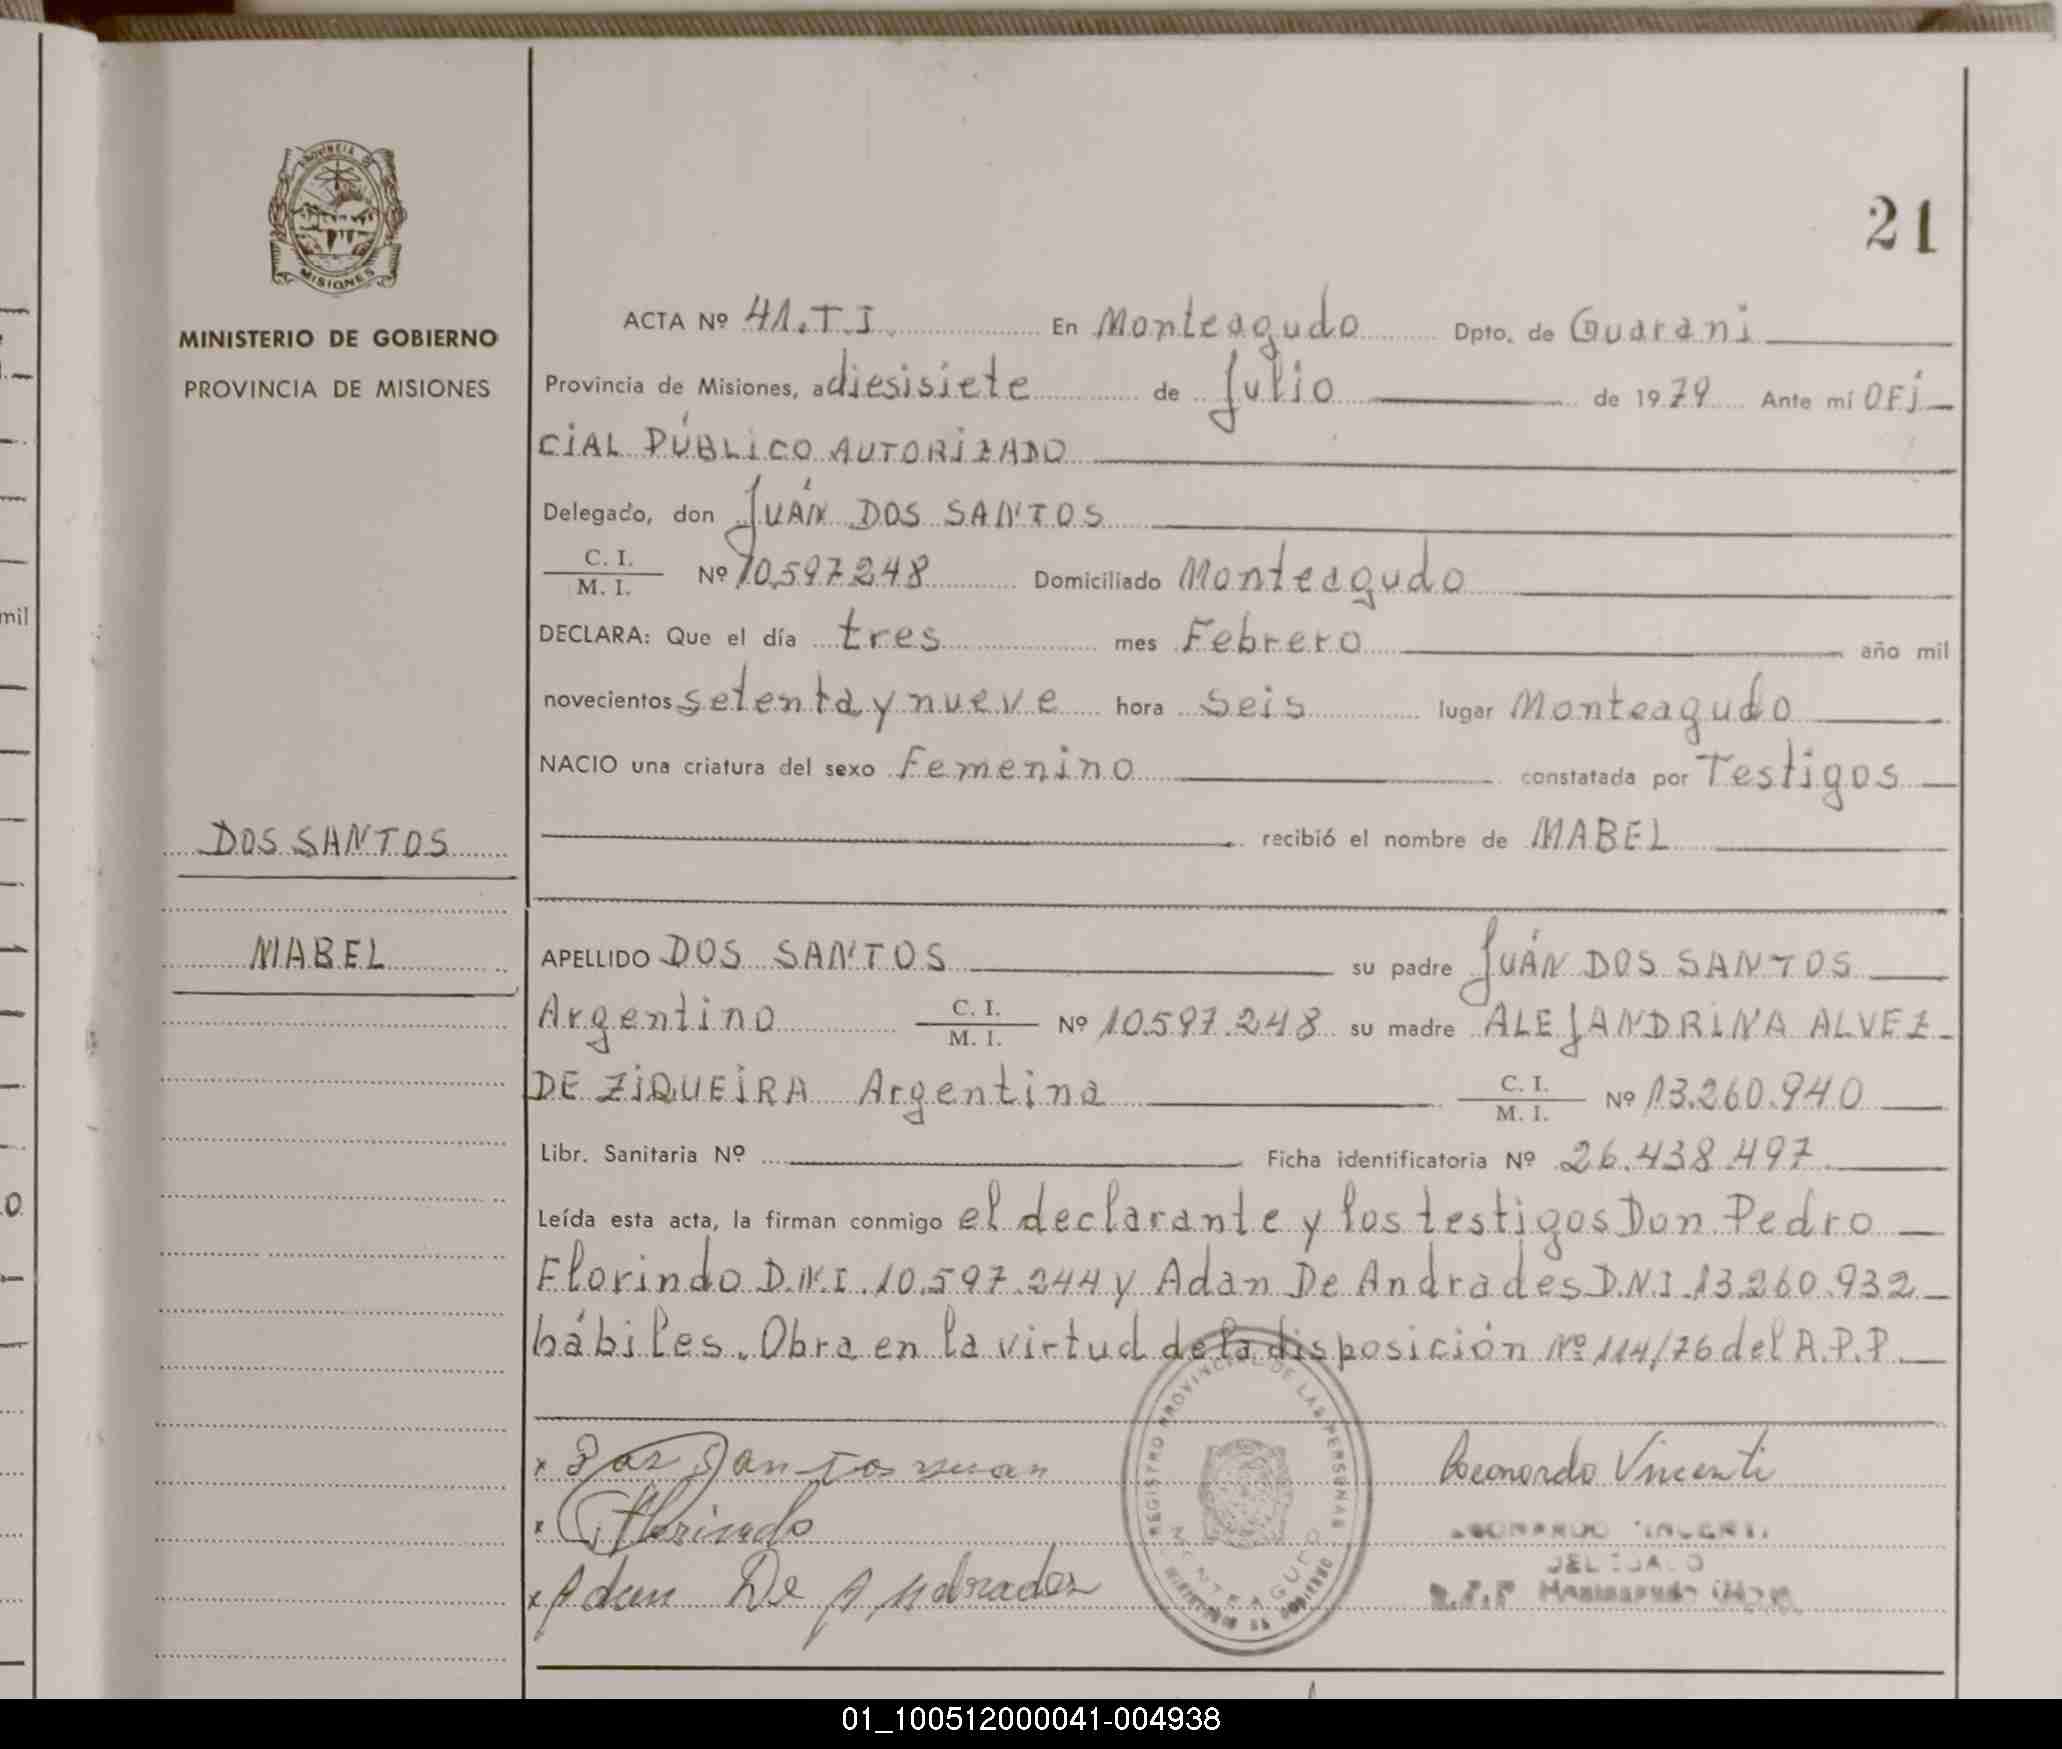 PROVINCIA DE
MISIONES
MINISTERIO DE GOBIERNO
PROVINCIA DE MISIONES
21
ACTA Nº 41.T.I. En Monteagudo Dpto. de Guarani
Provincia de Misiones, a diesisiete de Julio de 1979 Ante mí OFi
CiAL PÚBLiCO AUTORiZADO
Delegado, don JUÁN DOS SANTOS
C. I.
M. I. Nº 10.597.248 Domiciliado Monteagudo
DECLARA: Que el día tres mes Febrero año mil
novecientos setenta y nueve hora seis lugar Monteagudo
NACIO una criatura del sexo Femenino constatada por Testigos
DOS SANTOS
recibió el nombre de MABEL
MABEL
APELLIDO DOS SANTOS su padre JUÁN DOS SANTOS
Argentino C. I.
M. I. Nº 10.597.248 su madre ALEJANDRINA ALVEZ
DE ZiQUEiRA Argentina C. I.
M. I. Nº 13.260.940
Libr. Sanitaria Nº Ficha identificatoria Nº 26.438.497
Leída esta acta, la firman conmigo el declarante y los testigos Don Pedro
Florindo D.N.I. 10.597.244 y Adan De Andrades D.N.I. 13.260.932
hábiles. Obra en la virtud de la disposición Nº 114/76 del A.P.P
REGISTRO PROVINCIAL DE LAS PERSONAS
MONTEAGUDO
MINISTERIO DE GOBIERNO
x Dos Santos Juan
x Florindo
x Adan De Andrades
Leonardo Vincenti
LEONARDO VINCENTI
DELEGADO
mil
01_100512000041-004938